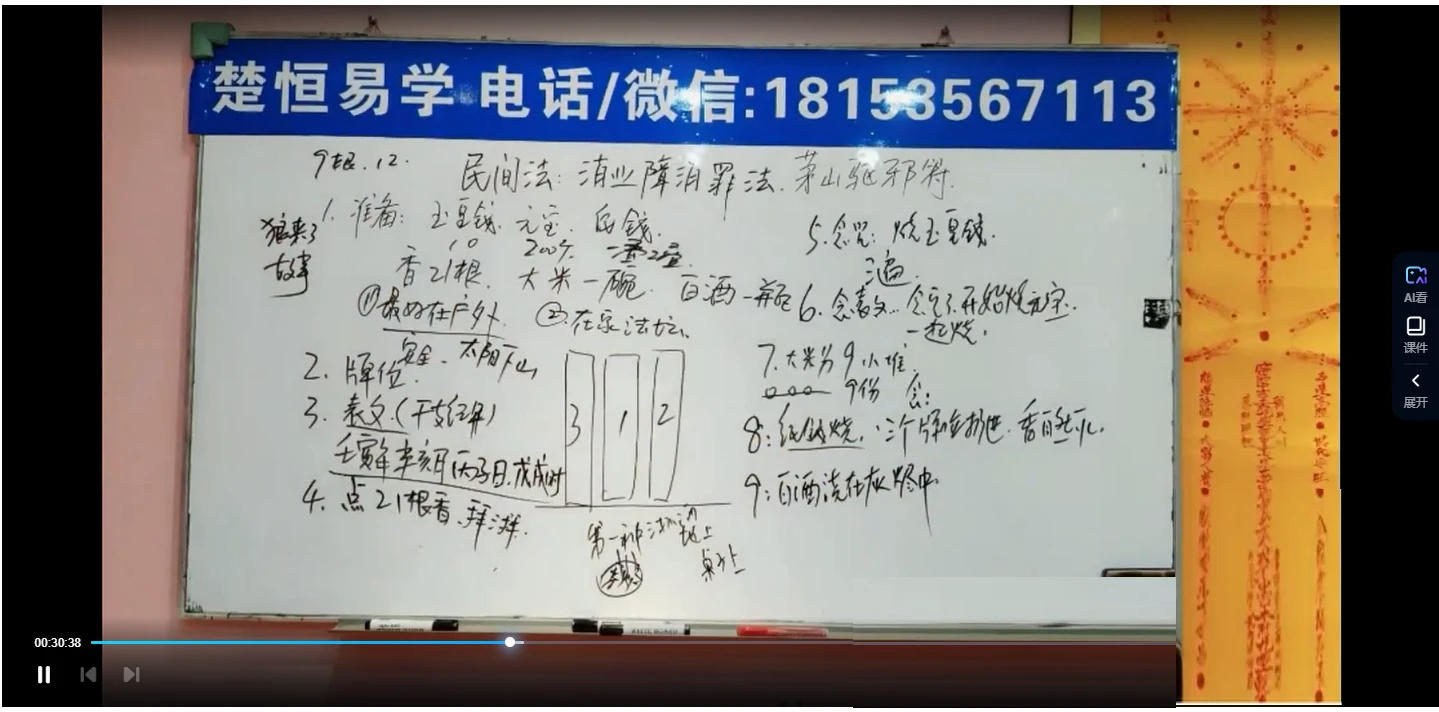 楚恒易学 电话/微信:18153567113
9根.12.
民间法:消业障消罪法.茅山驱邪符.
1.准备: 玉皇钱 元宝. 纸钱.
10 200个
狼来了
故事
香21根. 大米一碗. 白酒一瓶
①最好在户外. ②在家法坛.
安全. 太阳下山
2.牌位.
3.表文.(干支纪年)
壬寅年辛亥月丙子日.戊戌时
4.点21根香.拜
3 1 2
第一种 地上
桌子上
5.念咒: 烧玉皇钱.
三遍
6.念表文. 念完了.开始烧元宝.
一起烧.
7.大米分9小堆.
9份 念:
8:纸钱烧. 三个牌位
9:白酒浇在灰烬中.
AI看
课件
展开
00:30:38